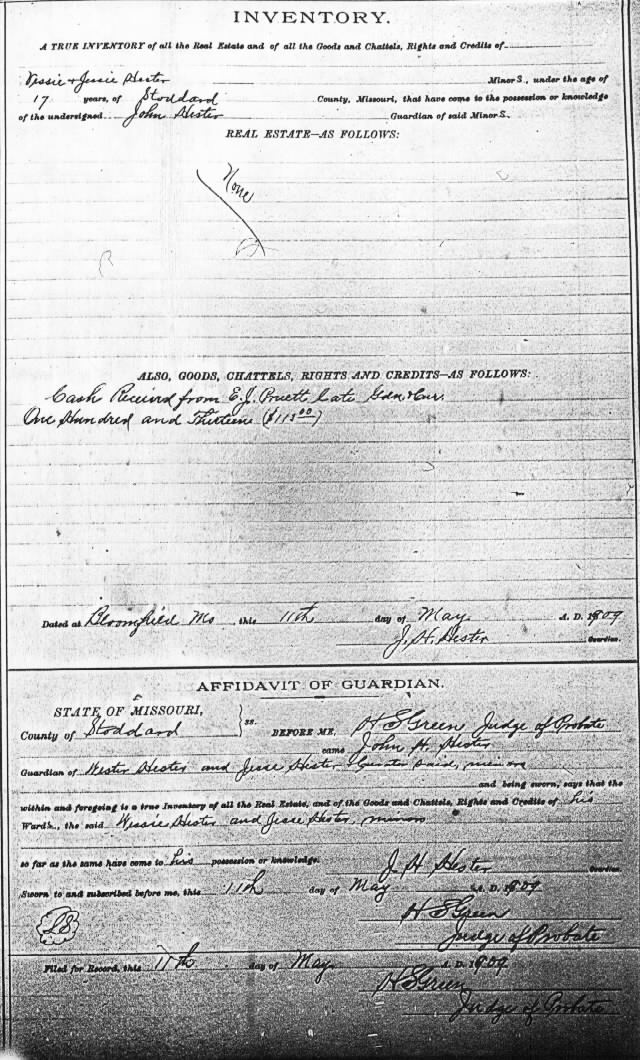 INVENTORY.
A TRUE INVENTORY of all the Real Estate and of all the Goods and Chattels, Rights and Credits of
Vessie & Jessie Hester Minors, under the age of
17 years, of Stoddard County, Missouri, that have come to the possession or knowledge
of the undersigned John Hester Guardian of said Minors.
REAL ESTATE—AS FOLLOWS:
None
ALSO, GOODS, CHATTELS, RIGHTS AND CREDITS—AS FOLLOWS:
Cash Received from E.J. Pruett Late Gdn & Cur.
One Hundred and Thirteen ($113 00)
Dated at Bloomfield Mo this 11th day of May A. D. 1909
J. H. Hester Guardian.
AFFIDAVIT OF GUARDIAN.
STATE OF MISSOURI,
County of Stoddard ss. BEFORE ME, H S Green Judge of Probate
came John H. Hester
Guardian of Hester and Jesse Hester said, minors
and being sworn, says that the
within and foregoing is a true Inventory of all the Real Estate, and of the Goods and Chattels, Rights and Credits of his
Wards, the said Vessie Hester and Jesse Hester, minors
so far as the same have come to his possession or knowledge. J. H. Hester Guardian.
Sworn to and subscribed before me, this 11th day of May A. D. 1909
H S Green
28 Judge of Probate
Filed for Record, this 11th day of May. A. D. 1909
H S Green
Judge of Probate